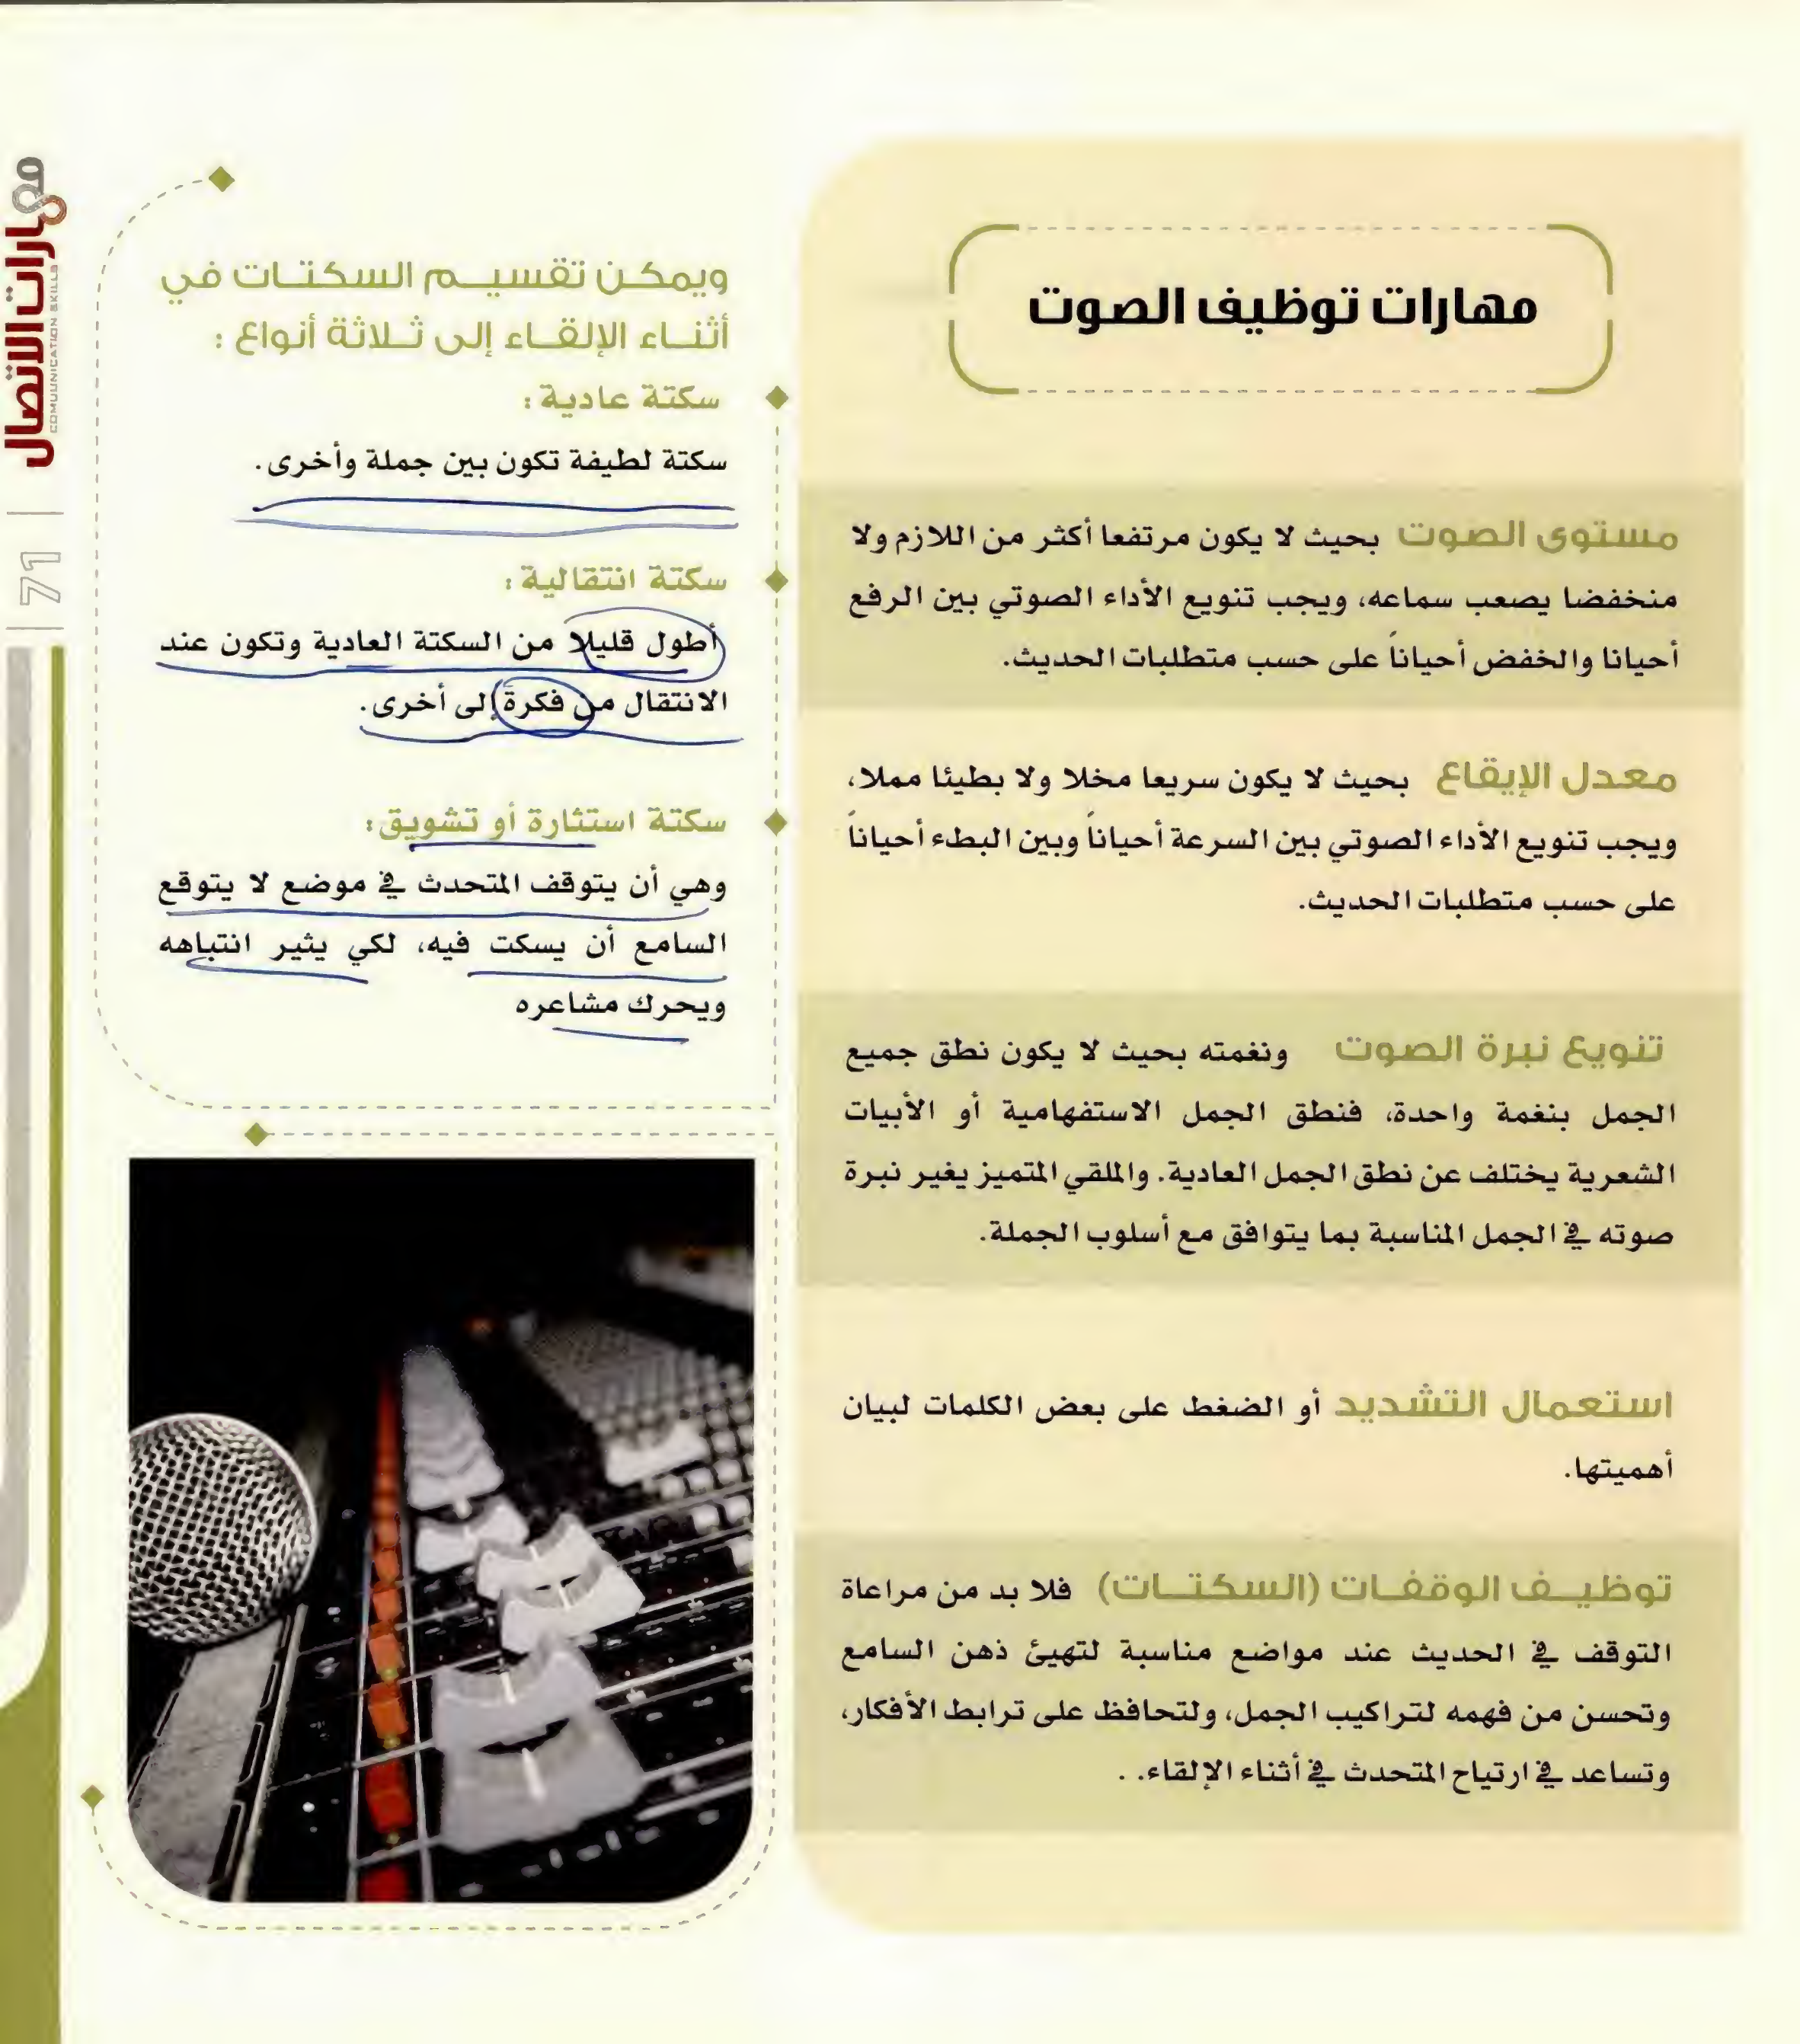 مهارات توظيف الصوت
مستوى الصوت بحيث لا يكون مرتفعا أكثر من اللازم ولا
منخفضا يصعب سماعه، ويجب تنويع الأداء الصوتي بين الرفع
أحيانا والخفض أحياناً على حسب متطلبات الحديث.
معدل الإيقاع بحيث لا يكون سريعا مخلا ولا بطيئا مملا،
ويجب تنويع الأداء الصوتي بين السرعة أحياناً وبين البطء أحياناً
على حسب متطلبات الحديث.
تنويع نبرة الصوت ونغمته بحيث لا يكون نطق جميع
الجمل بنغمة واحدة، فنطق الجمل الاستفهامية أو الأبيات
الشعرية يختلف عن نطق الجمل العادية. والملقي المتميز يغير نبرة
صوته في الجمل المناسبة بما يتوافق مع أسلوب الجملة.
استعمال التشديد أو الضغط على بعض الكلمات لبيان
أهميتها.
توظيف الوقفات (السكتات) فلا بد من مراعاة
التوقف في الحديث عند مواضع مناسبة لتهيئ ذهن السامع
وتحسن من فهمه لتراكيب الجمل، ولتحافظ على ترابط الأفكار،
وتساعد في ارتياح المتحدث في أثناء الإلقاء. .
ويمكن تقسيم السكتات في
أثناء الإلقاء إلى ثلاثة أنواع :
سكتة عادية :
سكتة لطيفة تكون بين جملة وأخرى.
سكتة انتقالية :
أطول قليلا من السكتة العادية وتكون عند
الانتقال من فكرة إلى أخرى.
سكتة استثارة أو تشويق:
وهي أن يتوقف المتحدث في موضع لا يتوقع
السامع أن يسكت فيه، لكي يثير انتباهه
ويحرك مشاعره
مهارات الاتصال
COMUNICATION SKILLS
71